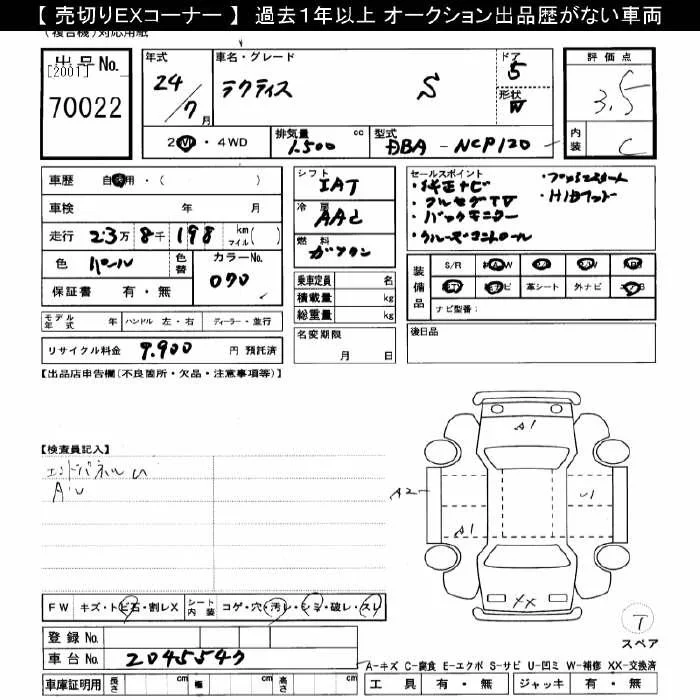 【 売切りEXコーナー 】 過去1年以上 オークション出品歴がない車両
(複合機)対応用紙
出品No.
[2001]
70022
年式
24/7月
車名・グレード
ラクティス S
ドア 5
形状 W
評価点
3.5
内装 C
2WD・4WD
排気量 1.500 cc
型式 DBA - NCP120
車歴 自家用・( )
車検 年 月
走行 23万 8千 198 km マイル( )
色 パール
色替
カラーNo. 070
保証書 有・無
モデル年式 年
ハンドル 左・右
ディーラー・並行
リサイクル料金 9.900 円 預託済
シフト IAT
冷房 AAC
燃料 ガソリン
乗車定員 名
積載量 kg
総重量 kg
名変期限
月 日
セールスポイント
・純正ナビ
・フルセグTV
・バックモニター
・クルーズコントロール
・プッシュスタート
・HIDライト
装備品
S/R A/W P/S P/W
ナビ 革シート 外ナビ
ナビ型番:
後日品
【出品店申告欄(不良箇所・欠品・注意事項等)】
【検査員記入】
エンドパネルU
A・U
A1
A2
U1
A1
XX
T
スペア
FW キズ・トビ石・割レX
シート内装 コゲ・穴・汚レ・シミ・破レ・スレ
登録No.
車台No. 2045547
A-キズ C-腐食 E-エクボ S-サビ U-凹ミ W-補修 XX-交換済
車庫証明用 長さ cm 幅 cm 高さ cm
工具 有・無 ジャッキ 有・無